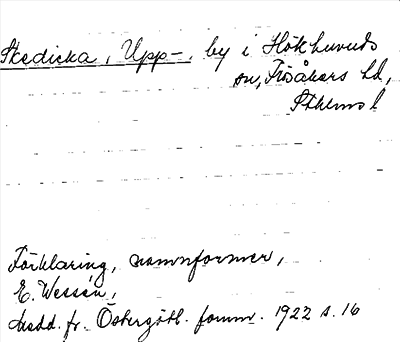 Skedicka, Upp-, by i Hökhuvuds
sn, Frösåkers hd,
Sthlms l
Förklaring, namnformer,
E. Wessén,
Medd. fr. Östergötl. fornm. 1922 s. 16